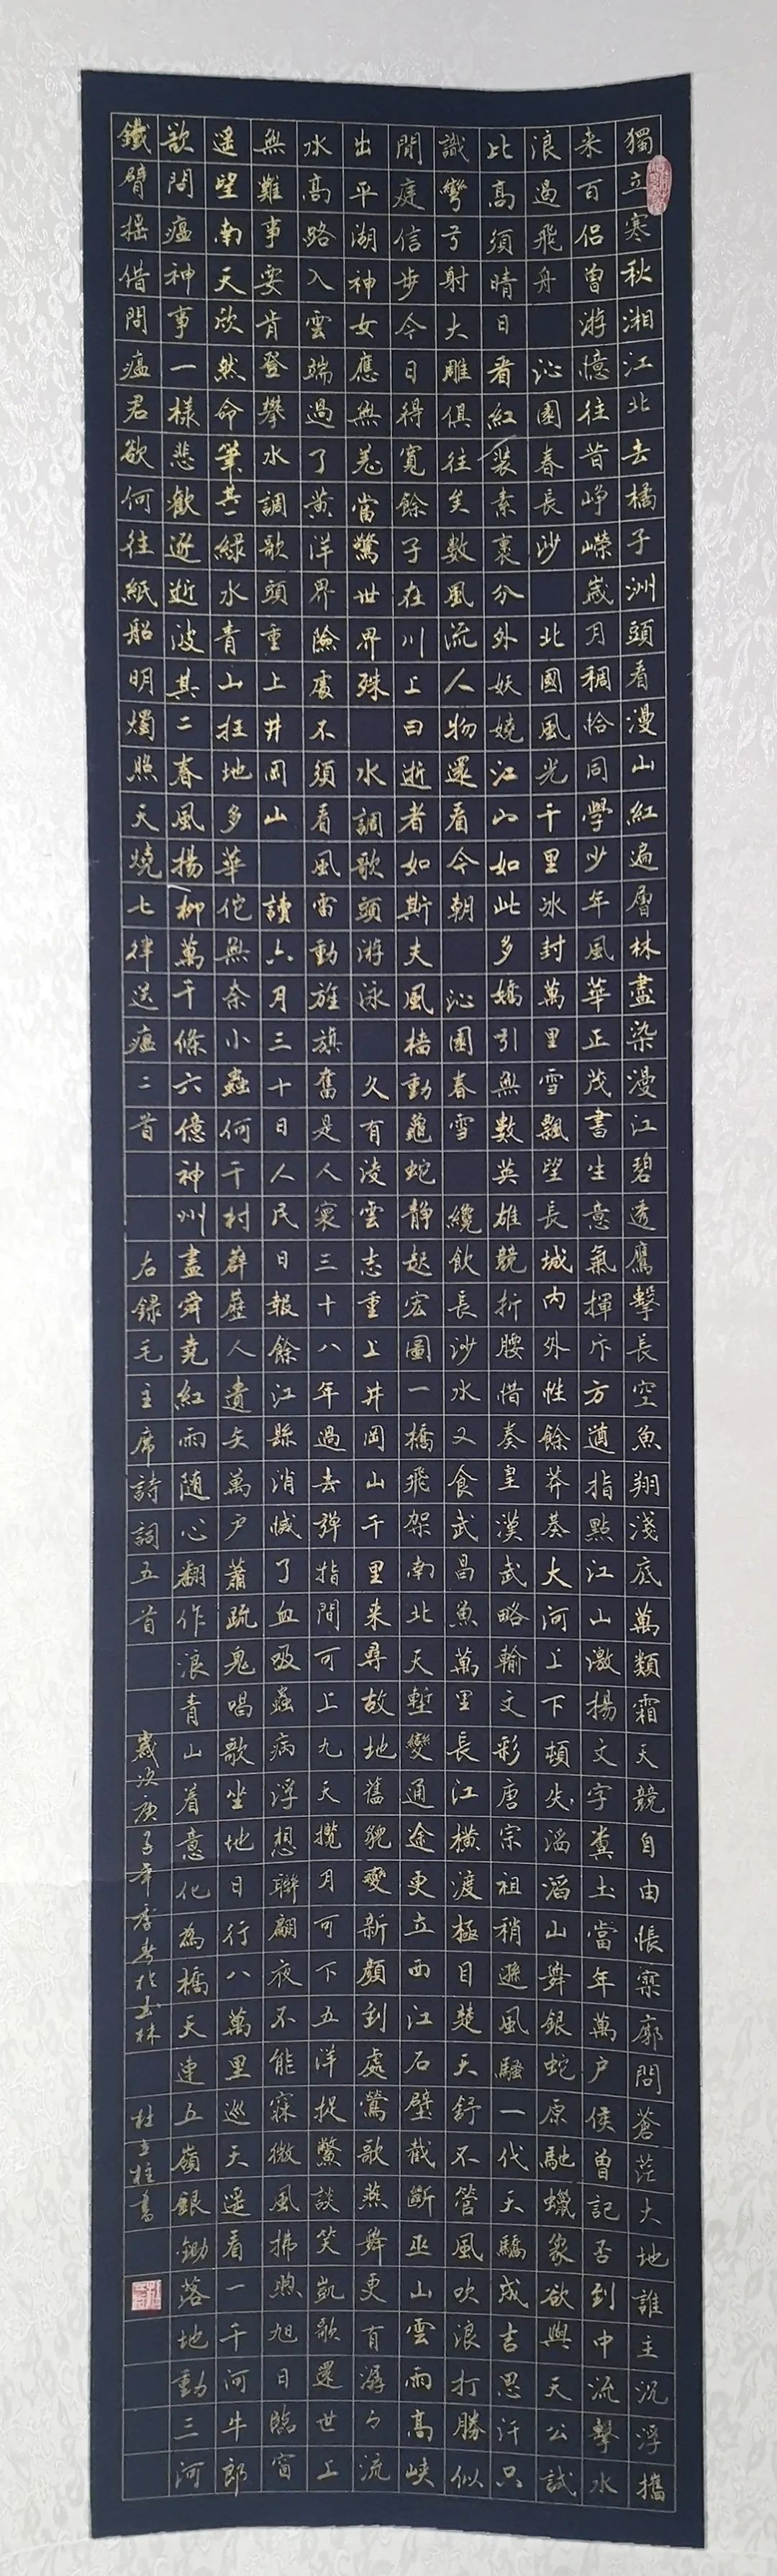 獨立寒秋湘江北去橘子洲頭看漫山紅遍層林盡染漫江碧透鷹擊長空魚翔淺底萬類霜天競自由悵寥廓問蒼茫大地誰主沉浮攜
来百侶曾游憶往昔崢嶸崴月稠恰同學少年風華正茂書生意氣揮斥方遒指點江山激揚文字糞土當年萬户侯曾記否到中流擊水
浪遏飛舟 沁園春長沙 北國風光千里冰封萬里雪飄望長城内外惟餘莽莽大河上下頓失滔滔山舞銀蛇原馳蠟象欲與天公試
比高須晴日看紅裝素裹分外妖嬈江山如此多嬌引無數英雄競折腰惜秦皇漢武略輸文彩唐宗祖稍遜風騷一代天驕成吉思汗只
識彎弓射大雕俱往矣數風流人物還看今朝 沁園春雪 纔飲長沙水又食武昌魚萬里長江橫渡極目楚天舒不管風吹浪打勝似
閒庭信步今日得寬餘子在川上曰逝者如斯夫風檣動龜蛇静起宏圖一橋飛架南北天塹變通途更立西江石壁截斷巫山雲雨高峽
出平湖神女應無恙當驚世界殊 水調歌頭游泳 久有凌雲志重上井岡山千里来尋故地舊貌變新顏到處鶯歌燕舞更有潺々流
水高路入雲端過了黃洋界險處不須看風雷動旌旗奮是人寰三十八年過去彈指間可上九天攬月可下五洋捉鱉談笑凱歌還世上
無難事要肯登攀水調歌頭重上井岡山 讀六月三十日人民日報餘江縣消滅了血吸蟲病浮想聯翩夜不能寐微風拂煦旭日臨窗
遥望南天欣然命筆其一綠水青山枉地多華佗無奈小蟲何千村薜荔人遺矢萬户蕭疏鬼唱歌坐地日行八萬里巡天遥看一千河牛郎
欲問瘟神事一樣悲歡逐逝波其二春風揚柳萬千條六億神州盡舜堯紅雨隨心翻作浪青山着意化為橋天連五嶺銀鋤落地動三河
鐵臂搖借問瘟君欲何往紙船明燭照天燒七律送瘟二首 右錄毛主席詩詞五首 歲次庚子年季春於玉林 杜立柱書